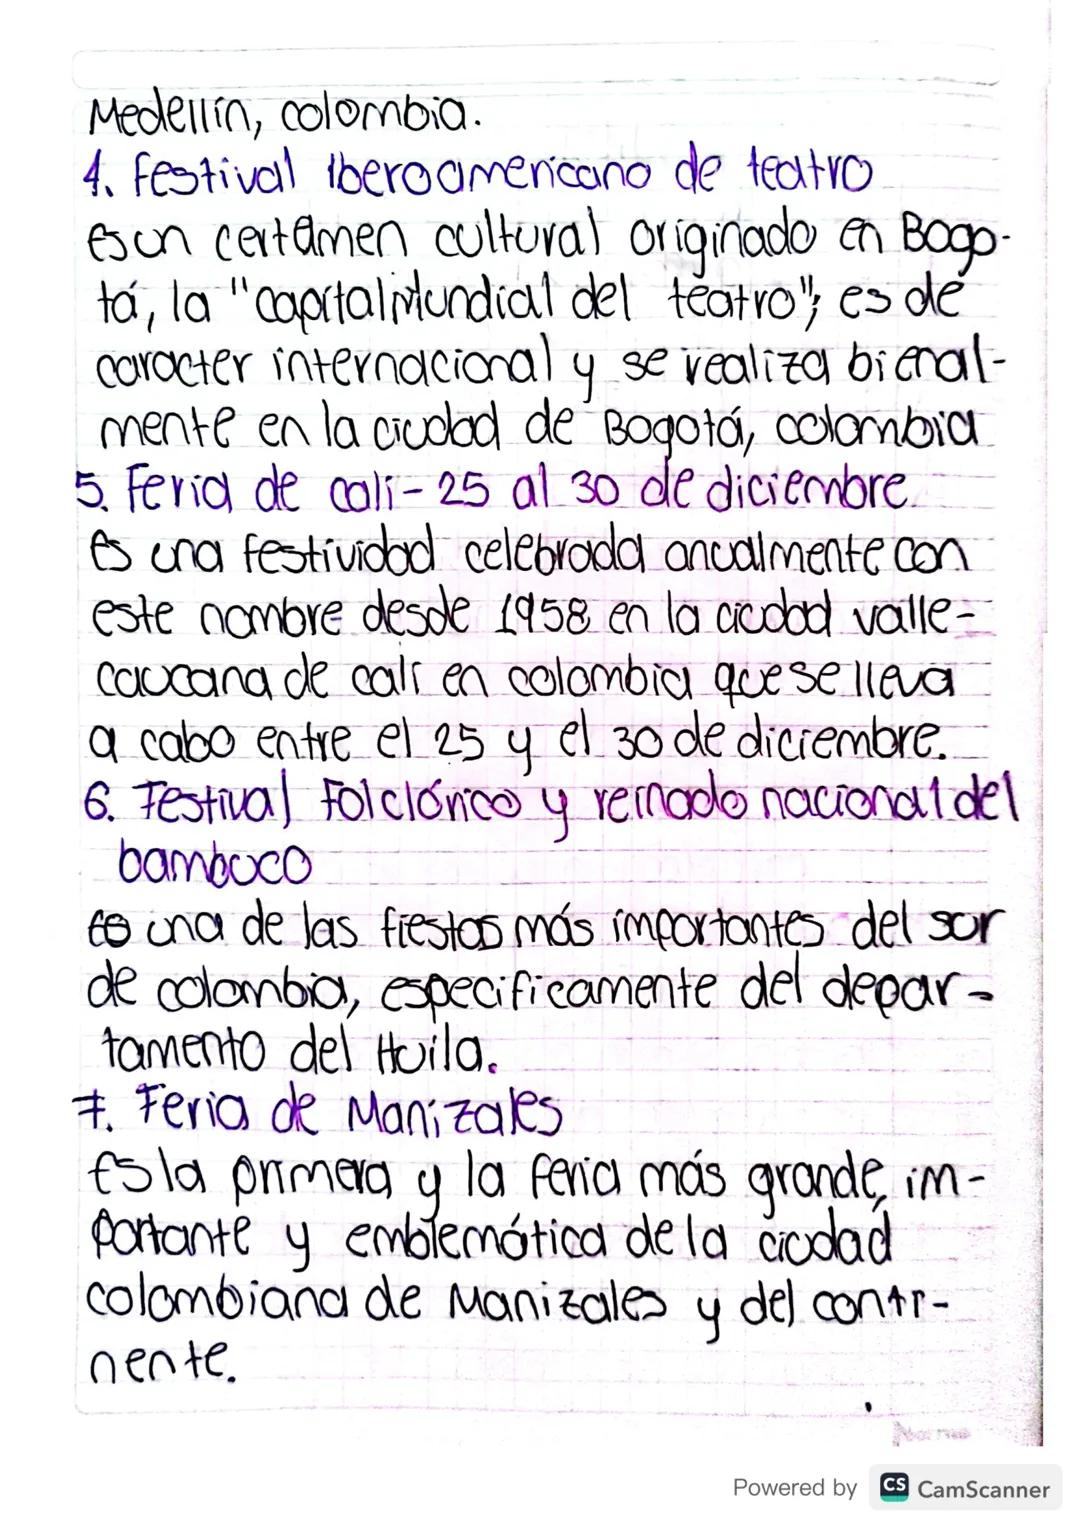 Medellín, colombia.
4. festival iberoamericano de teatro
es un certamen cultural originado en Bogo-
tá, la "capital Mundial del teatro"; es de
caracter internacional y se realiza bienal-
mente en la ciudad de Bogotá, colombia
5. Feria de cali - 25 al 30 de diciembre.
es una festividad celebrada anualmente con
este nombre desde 1958 en la ciudad valle-
caucana de cali en colombia que se lleva
a cabo entre el 25 y el 30 de diciembre.
6. Festival Folclórico y reinado nacional del
bambuco
es una de las fiestas más importantes del sur
de colombia, especificamente del depar-
tamento del Huila.
7. Feria de Manizales
Es la primera y la feria más grande, im-
portante y emblemática de la ciudad
colombiana de Manizales y del conti-
nente.
Norma
Powered by CS CamScanner